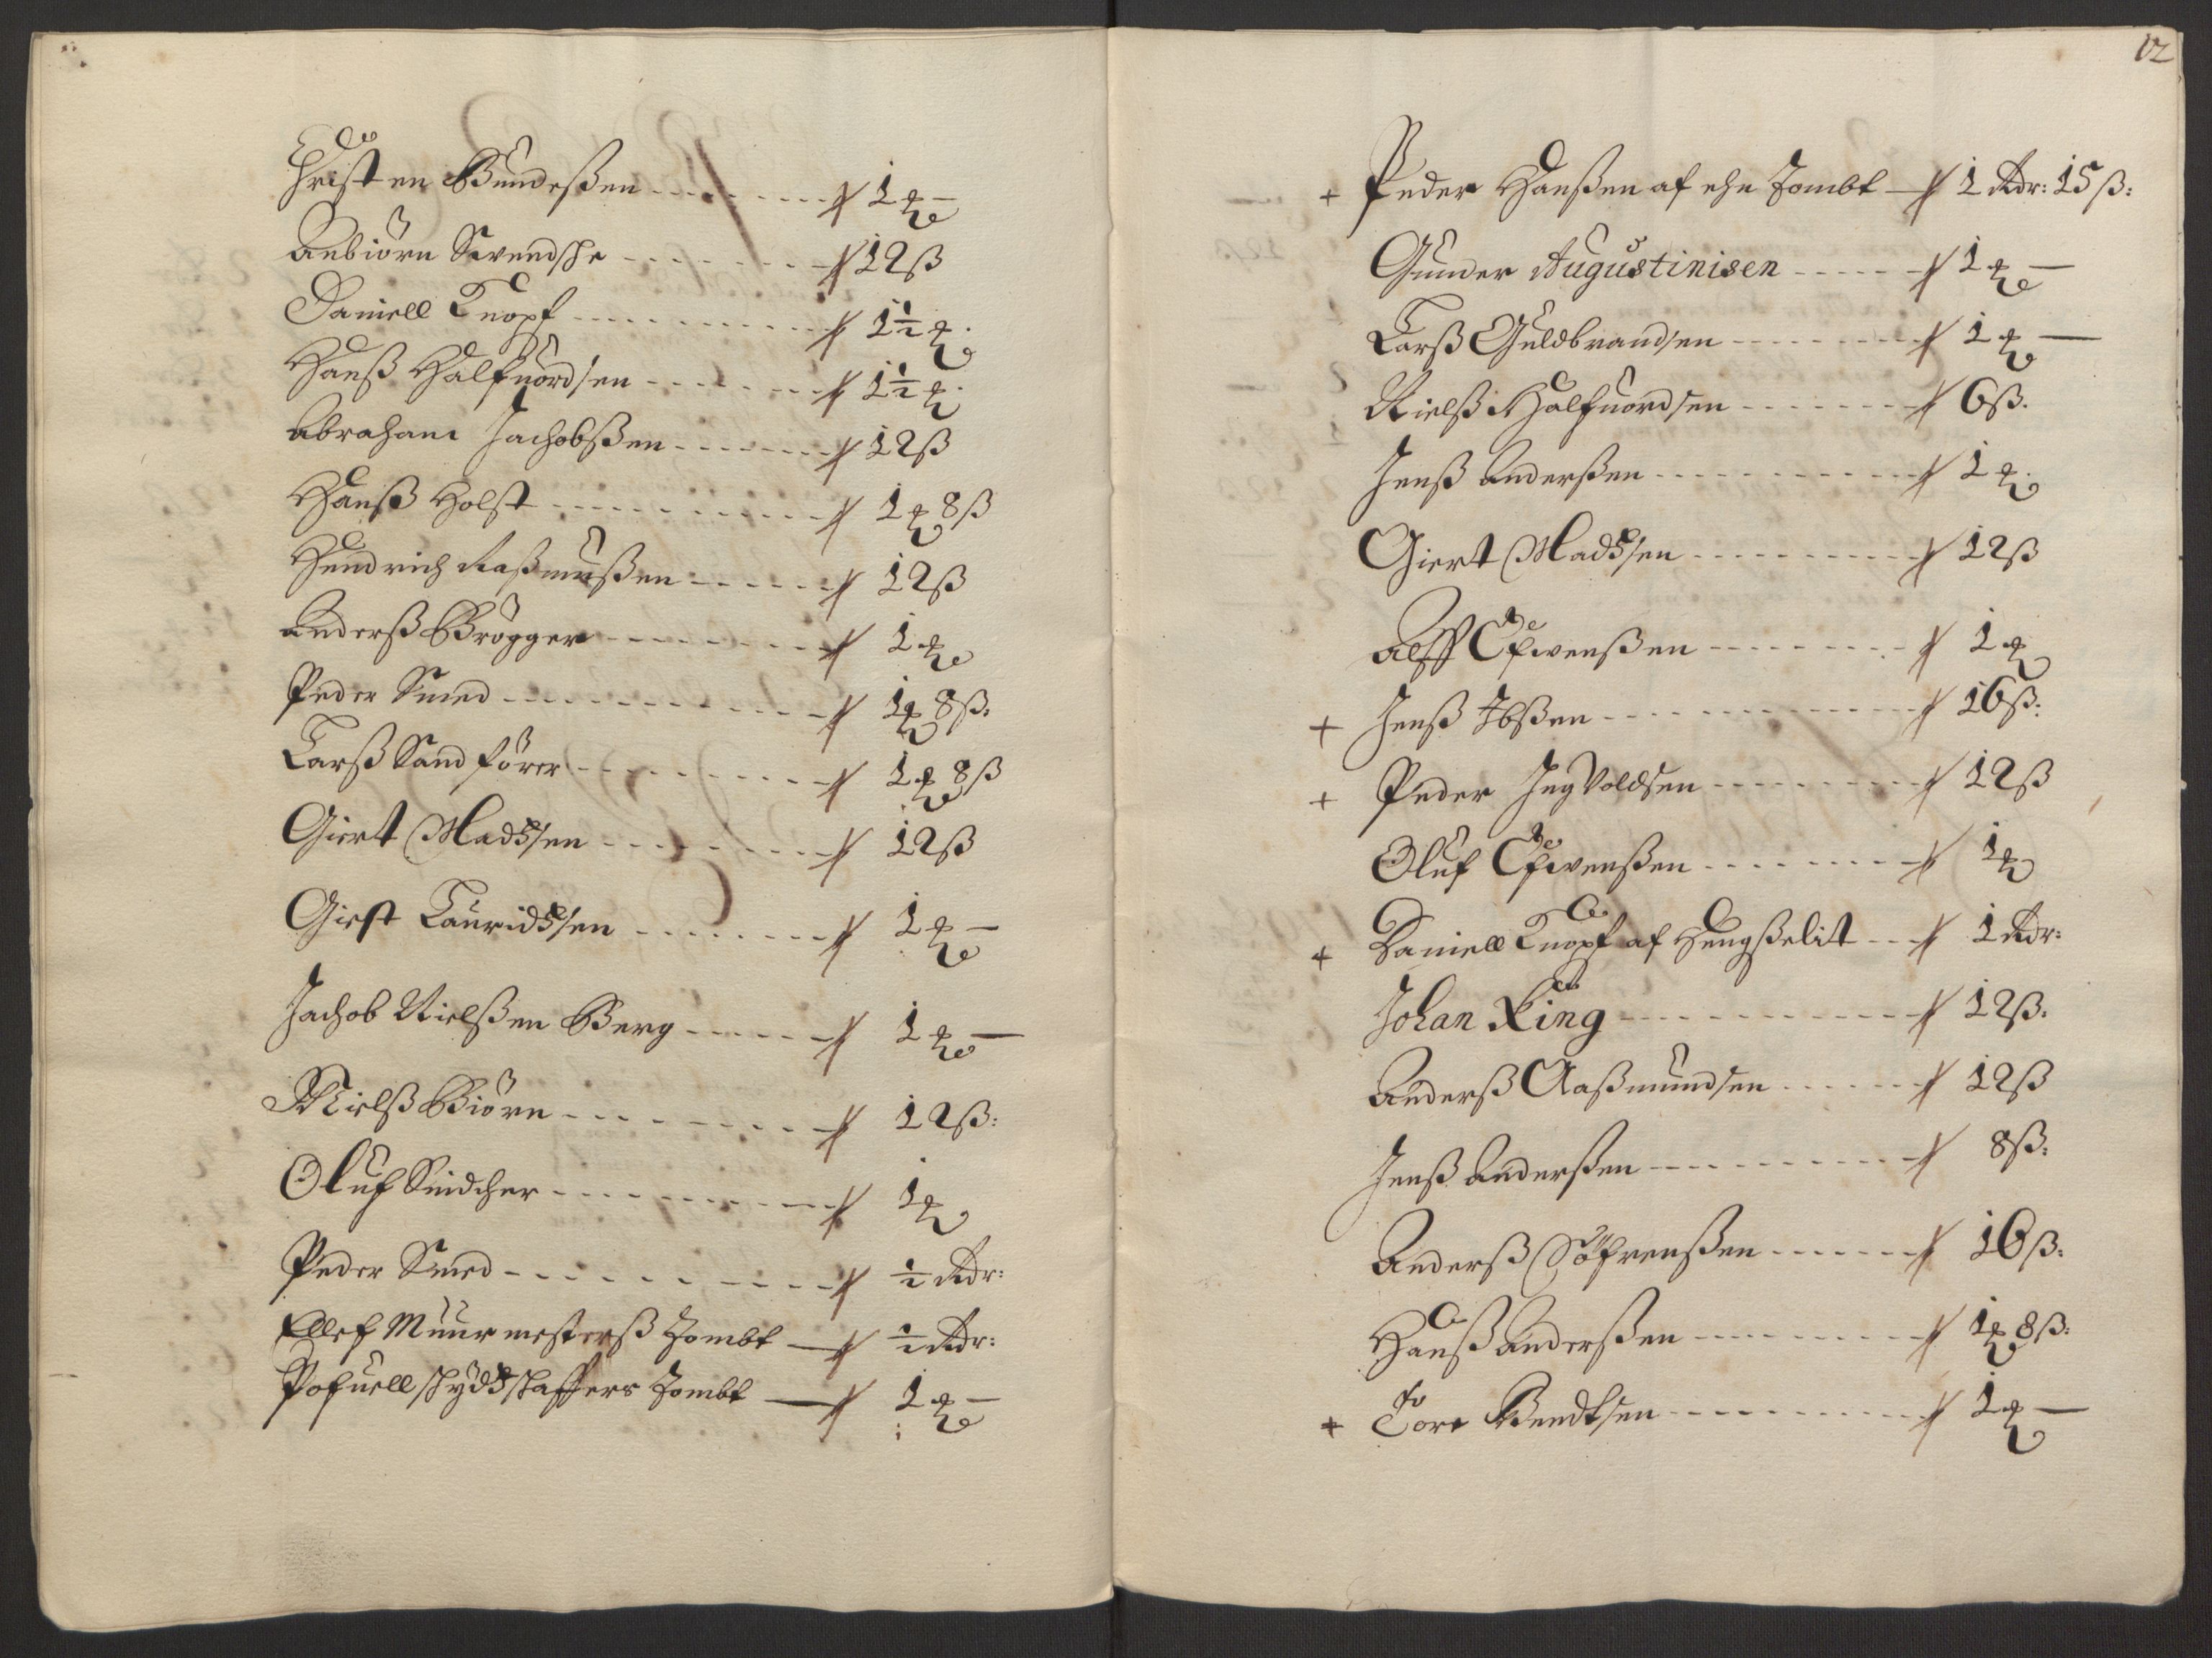 Christen Gundersen ------- 1 ₰ —
Anbiörn Svendsche ------- 12 ß
Daniell Knopf ------- 1½ ₰.
Hanß Halfuordsen ------- 1½ ₰.
Abraham Jachobßen ------- 12 ß
Hanß Holst ------- 1 ₰ 8 ß
Hendrich Raßmußen ------- 12 ß
Anderß Brögger ------- 1 ₰
Peder Smed ------- 1 ₰ 8 ß:
Larß Sandförer ------- 1 ₰ 8 ß
Giert Madssen ------- 12 ß
Giert Lauridssen ------- 1 ₰ —
Jachob Nielßen Berg ------- 1 ₰ —
Nielß Biörn ------- 12 ß:
Oluf Snidcher ------- 1 ₰
Peder Smed ------- ½ Rdr:
Ellef Muurmesterß Tombt — ½ Rdr:
Pofuell schydsschaffers Tombt — 1 ₰ —
12
+ Peder Hanßen af ehn Tombt — 1 Rdr: 15 ß:
Gunder Augustinisen ------- 1 ₰ —
Larß Guldbrandsen ------- 1 ₰ —
Nielß Halfuordsen ------- 6 ß.
Jenß Anderßen ------- 1 ₰.
Giert Madssen ------- 12 ß
Alff Efwenßen ------- 1 ₰
+ Jenß Ibßen ------- 16 ß:
+ Peder Ingvoldsen ------- 12 ß
Oluf Efwenßen ------- 1 ₰
+ Daniell Knopf af Hengßelit -- 1 Rdr:
Johan King ------- 12 ß.
Anderß Aaßmundsen ------- 12 ß
Jenß Anderßen ------- 8 ß:
Anderß Söfrenßen ------- 16 ß:
Hanß Anderßen ------- 1 ₰ 8 ß:
+ Tore Bendtsen ------- 1 ₰ —